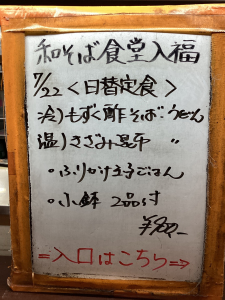 和そば食堂入福
7/22<日替定食>
冷)もずく酢そば・うどん
温)きざみ昆布 〃
・ふりかけ玉子ごはん
・小鉢 2品付
=入口はこちら⇒